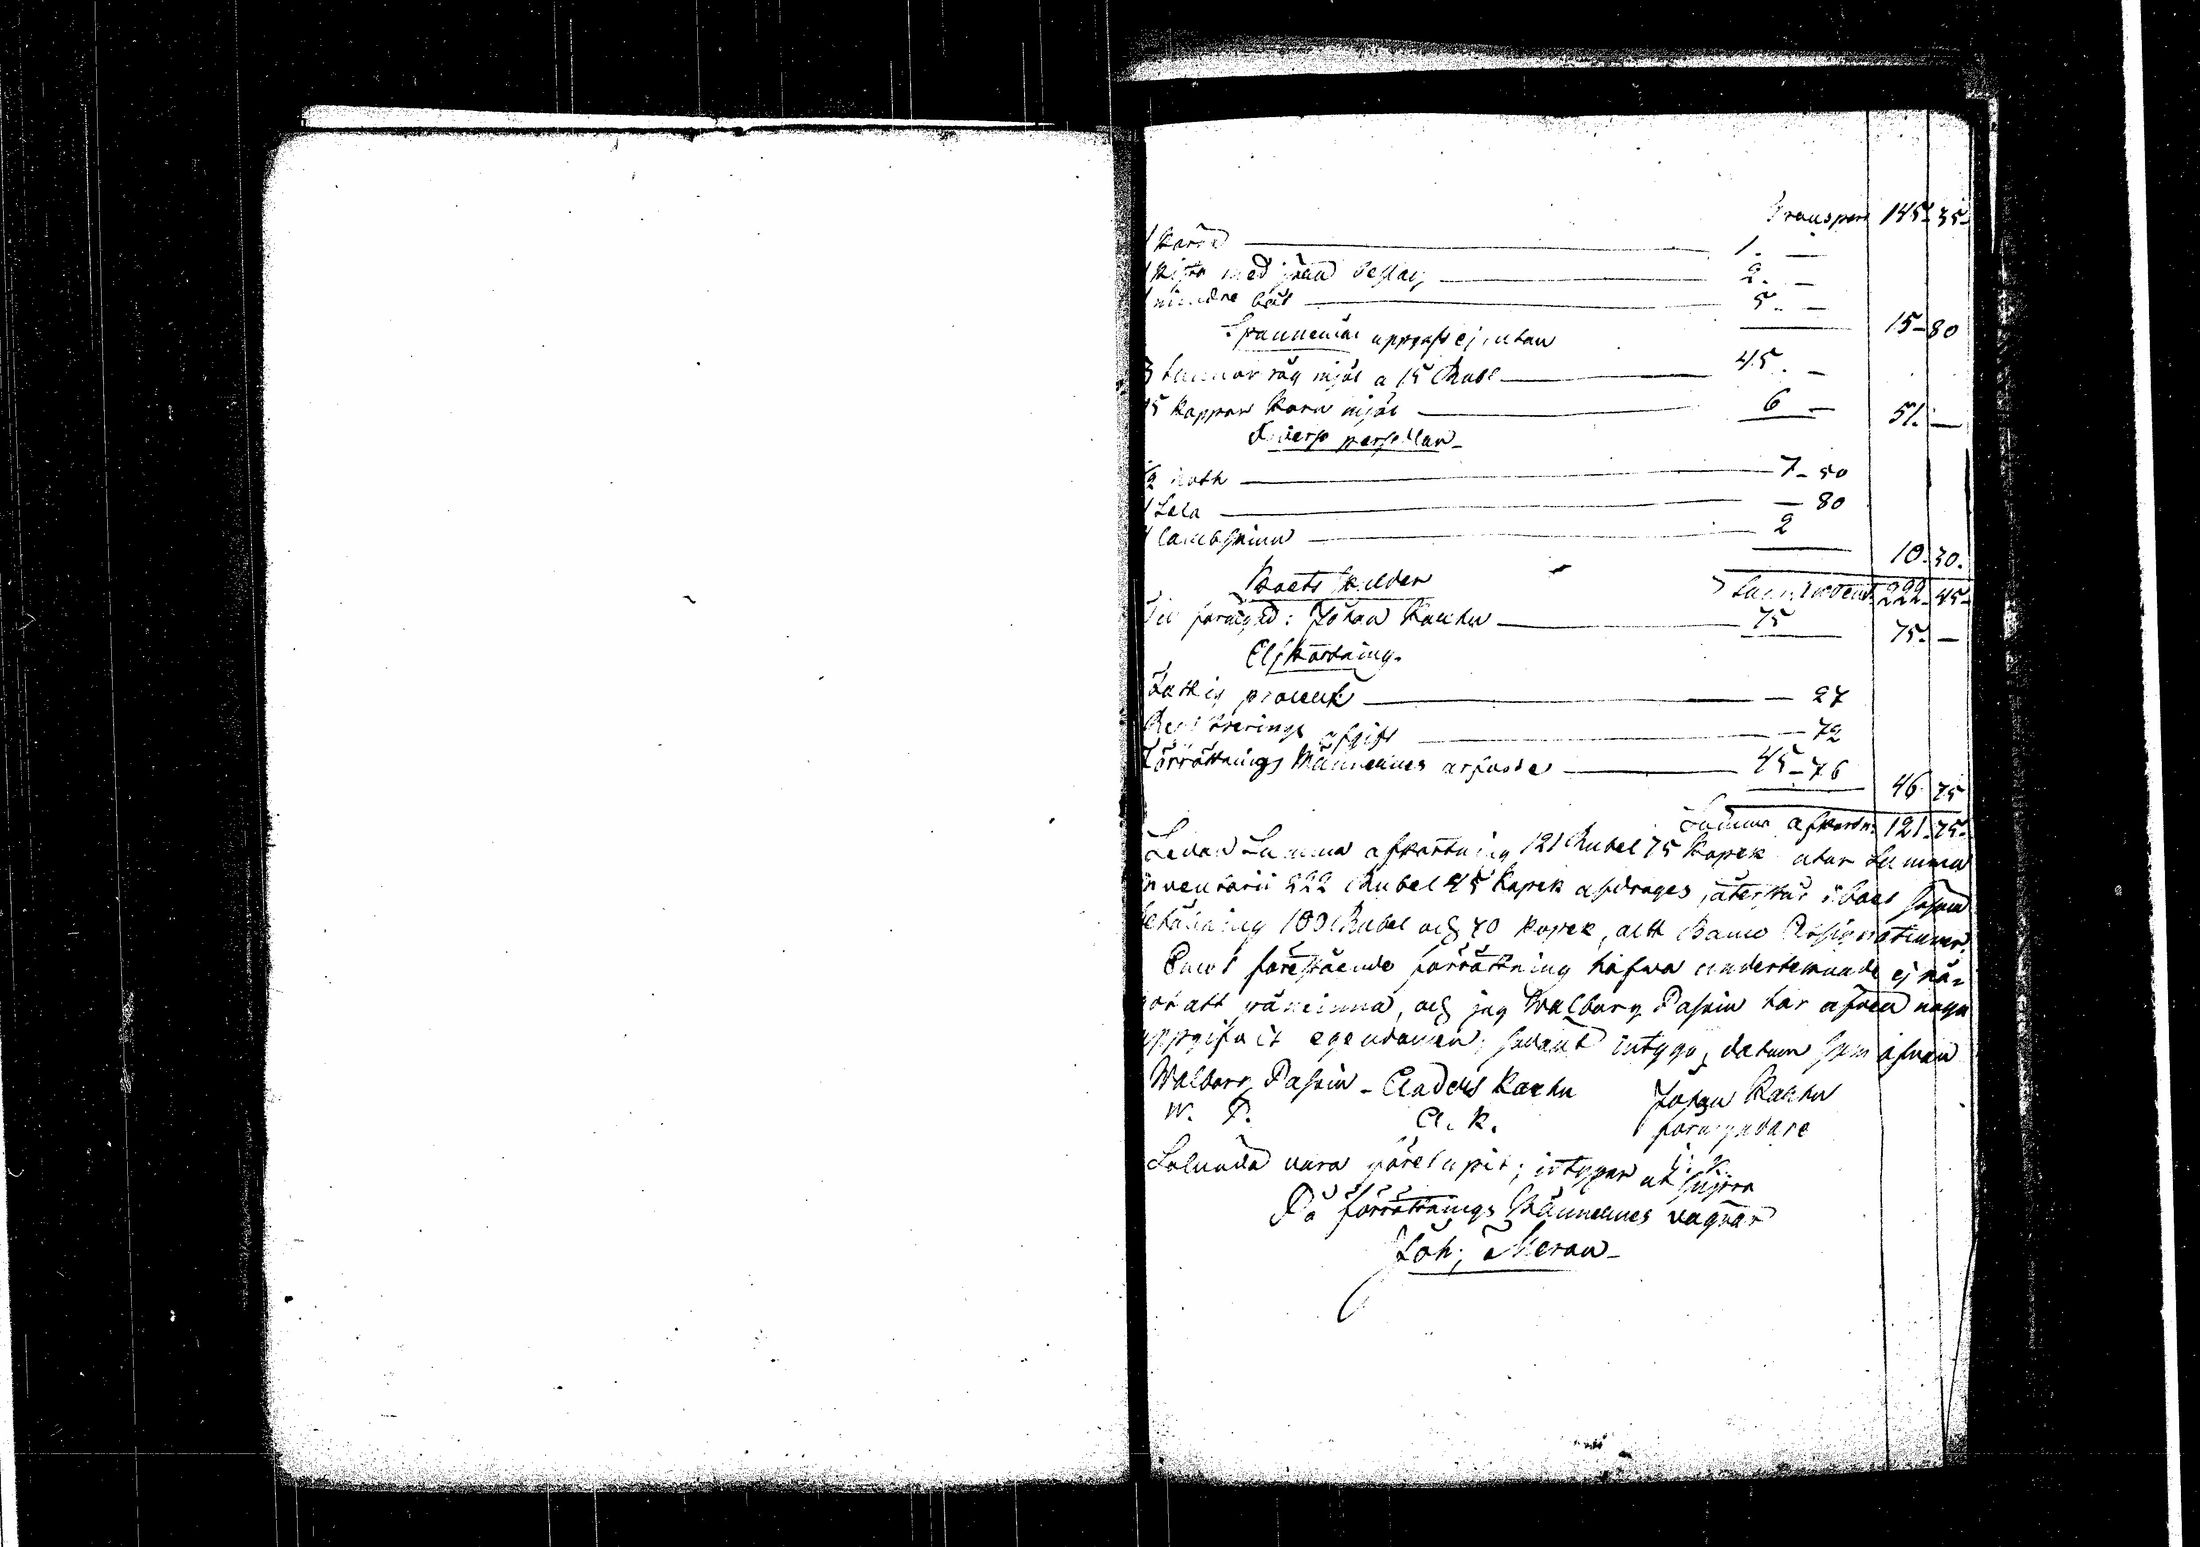 Transport 145. 35.
1 Kärra 1. —
1 kista med järn beslag 2. —
1 mindre båt 5. — 15-80
Spannemål uppgafs ej, utan
3 tunnor råg mjöl a 15 Rubl 45. —
15 kappar korn mjöl 6 — 51. —
Diverse persedlar
½ noth 7-50
1 Sela — 80
lambskinn 2 10. 30.
Boets skulder Summa Invent. 222. 45.
Till förmynd: Johan Kauhu 75 75. —
Afkortning.
Fattig procent — 27
Registrerings afgift — 72
Förrättnings Männernes arfvode 45-76 46. 75
Summa afkortn. 121. 75.
Sedan Summa afkortning 121 Rubel 75 kopek utur Summa
Inventarii 222 Rubel 45 kopek afdrages, återstår i boet såsom
behållning 100 Rubel och 70 kopek, allt Banco Assignationer.
Emot förestående förrättning hafva undertecknade ej nå-
got att påminna, och jag Walborg Pasoin har äfven noga
uppgifvit egendomen; sådant intyga, datum som ofvan
Walborg Pasoin - Anders Kauhu Johan Kauhu
W. P. A. K. förmyndare
J. K.
Salunda vara förelupit; intygar ut supra
På förrättnings Männernes vägnar
Joh; Meran